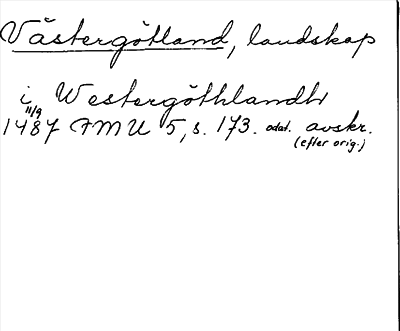 Västergötland, landskap
i Westergöthlandh
11/9
1487 FMU 5, s. 173. odat. avskr.
(efter orig.)